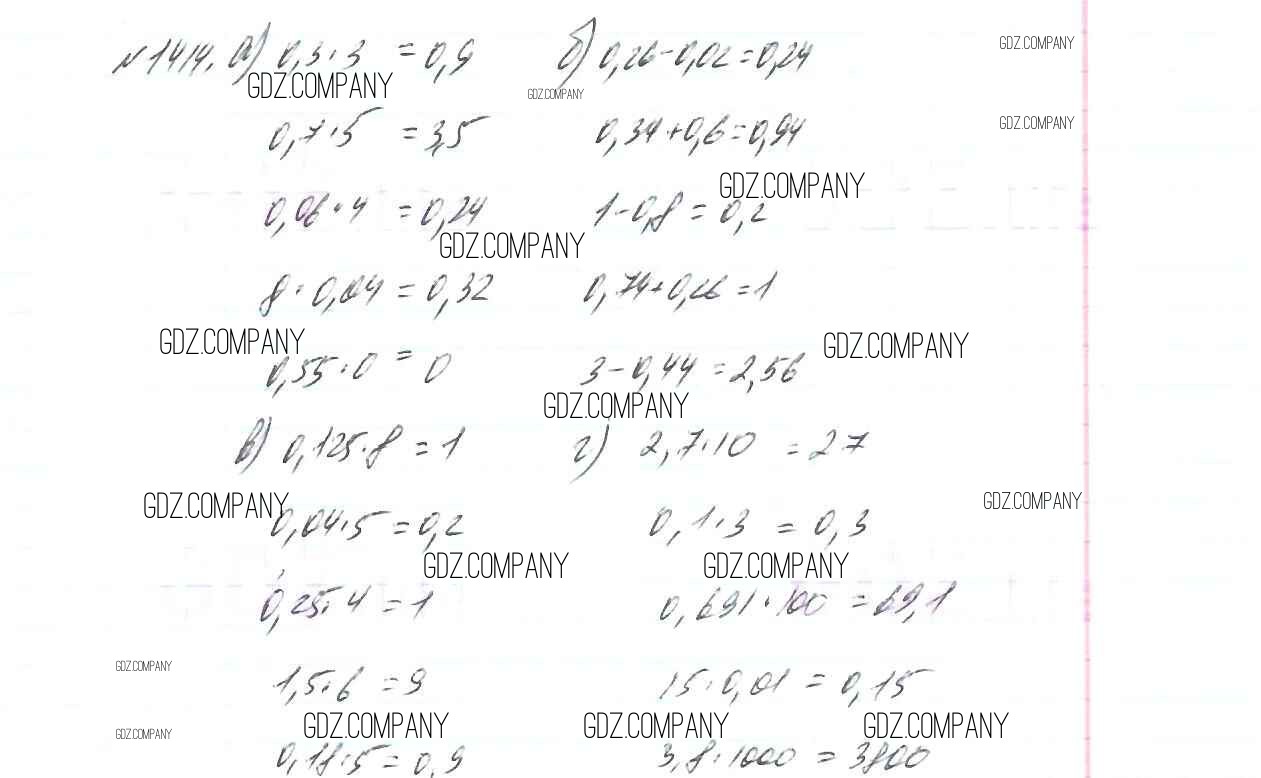 №1414. а) 0,3·3 = 0,9 б) 0,26-0,02=0,24
GDZ.COMPANY
GDZ.COMPANY GDZ.COMPANY
0,7·5 = 3,5 0,34+0,6=0,94
GDZ.COMPANY
GDZ.COMPANY
0,06·4 = 0,24 1-0,8=0,2
GDZ.COMPANY
8·0,04=0,32 0,74+0,26=1
GDZ.COMPANY GDZ.COMPANY
0,55·0 = 0 3-0,44=2,56
GDZ.COMPANY
в) 0,125·8=1 г) 2,7·10 = 27
GDZ.COMPANY GDZ.COMPANY
0,04·5=0,2 0,1·3 = 0,3
GDZ.COMPANY GDZ.COMPANY
0,25·4=1 0,691·100=69,1
GDZ.COMPANY
1,5·6=9 15·0,01 = 0,15
GDZ.COMPANY GDZ.COMPANY GDZ.COMPANY GDZ.COMPANY
0,18·5=0,9 3,8·1000 = 3800